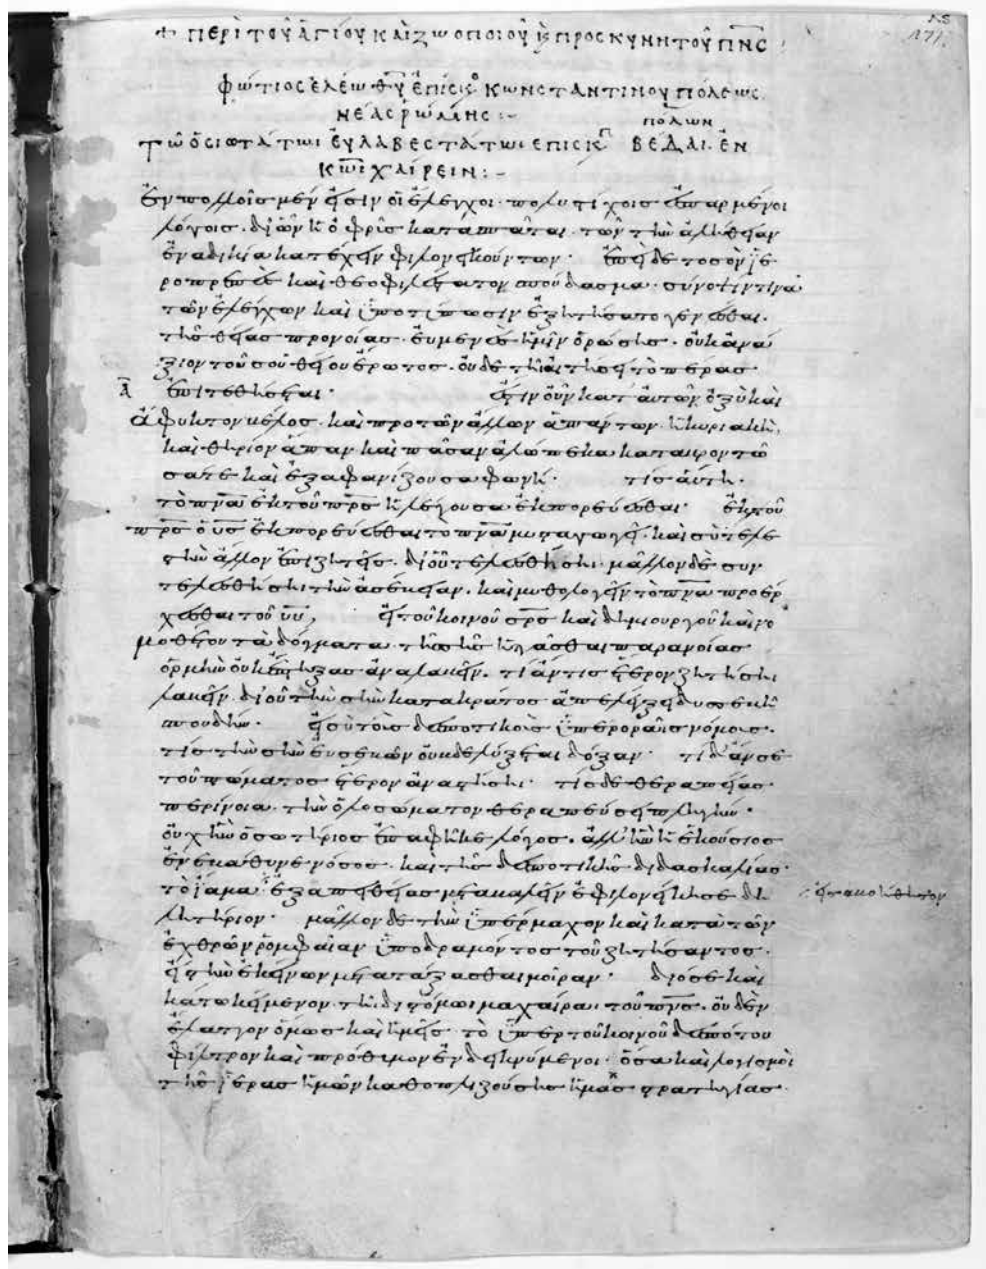 + ΠΕΡΙ ΤΟΥ ΑΓΙΟΥ ΚΑΙ ΖΩΟΠΟΙΟΥ ϗ ΠΡΟΣΚΥΝΗΤΟΥ ΠΝΣ
φώτιος ἐλέω θῦ ἐπίσκο κωνσταντινουπόλεως
νέας ῥώμης :-
πόλων
τῶ ὁσιωτάτωι εὐλαβεστάτωι ἐπισκπ βέδαι ἐν
κῶι χαίρειν :-
ἐν πολλοῖς μέν εἰσιν οἱ ἔλεγχοι πολυστίχοις ἐσπαρμένοι
λόγοις. δι ὧν ἡ ὀφρῦς κατασπᾶται τῶν τὴν ἀλήθειαν
ἐν ἀδικία κατέχειν φιλονεικούντων· ἐπεὶ δὲ τὸ σὸν ἱε
ροπρεπὲς καὶ θεοφιλέστατον σπούδασμα σύνοψιν τινὰ
τῶν ἐλέγχων καὶ ὑποτύπωσιν ἐξήτησατο γενέσθαι.
τῆς θείας προνοίας εὐμενὲς ἡμῖν ὁρώσης. οὐκ ἀνά
ξιον τοῦ σοῦ θείου ἔρωτος. οὐδὲ τῆι αἰτήσει τὸ πέρας
Α ἐπιτεθήσεται· ἔστιν οὖν κατ αὐτῶν ὀξὺ καὶ
ἄφυκτον βέλος. καὶ πρὸ τῶν ἄλλων ἁπάντων ἡ κυριακὴ,
καὶ θηρίον ἅπαν καὶ πᾶσαν ἀλώπεκα καταιροντῶ
σατε καὶ ἐξαφανίζουσα φωνή· τίς αὕτη·
τὸ πνᾶ ἐκ τοῦ πρς ἡ λέγουσα ἐκπορεύεσθαι· ἐκ τοῦ
πρς ὁ υς ἐκπορεύεσθαι τὸ πνᾶ μυσταγωγεῖ. καὶ σὺ τελε
στὴν ἄλλον ἐπιζητεῖς. δι οὗ τελεσθήσηι. μᾶλλον δὲ συν
τελεσθήσηι τὴν ἀσέβειαν. καὶ μυθολογεῖν τὸ πνᾶ προέρ
χεσθαι τοῦ υυ, εἰ τοῦ κοινοῦ σρς καὶ δημιουργοῦ καὶ νο
μοθέτου τὰ δόγματα
ὁρμὴν οὐκ ἔπτηξας ἀναλαβεῖν. τί ἄν τις ἕτερον ζητήσηι
λαβεῖν. δι οὗ τὴν σὴν κατὰ κράτος ἀπελέγξει δυσσεβῆ
σπουδήν· εἰ σὺ τοῖς δεσποτικοῖς ὑπερορᾶις νόμοις.
τίς τὴν σὴν εὐσεβῶν οὐ βδελύξεται δόξαν· τί δ ἄν σε
τοῦ πτώματος ἕτερον ἀναστήσηι· τίς δὲ θεραπείας
περίνοια. τὴν ὁλοσώματον θεραπεύσει πληγήν·
οὐχ ἣν ὁ σωτήριος ἐπαφῆκε λόγος. ἀλλ ἣν ἡ ἑκούσιος
ἐνεκαθυνε νόσος. καὶ τῆς δεσποτικῆς διδασκαλίας
τὸ ἴαμα ἐξ ἀπειθείας μεταβαλεῖν ἐφιλονείκησε δη
λητήριον· μᾶλλον δὲ τὴν ὑπέρμαχον καὶ κατὰ τῶν
ἐχθρῶν ῥομφαίαν ὑποδραμόντος τοῦ ζητήσαντος.
εἰς τὴν ἐκείνων μετατάξασθαι μοῖραν· διὸ σὲ καὶ
κατωκείμενον τῆι διστόμωι μαχαίραι τοῦ πνς. οὐδὲν
ἔλαττον ὅμως καὶ ἡμεῖς τὸ ὑπὲρ τοῦ κοινοῦ δεσπότου
φίλτρον καὶ πρόθυμον ἐνδεικνύμενοι· ὅσα καὶ λογισμοὶ
τῆς ἱερᾶς ἡμῶν καθοπλιζούσης ἡμᾶς στρατηγίας.